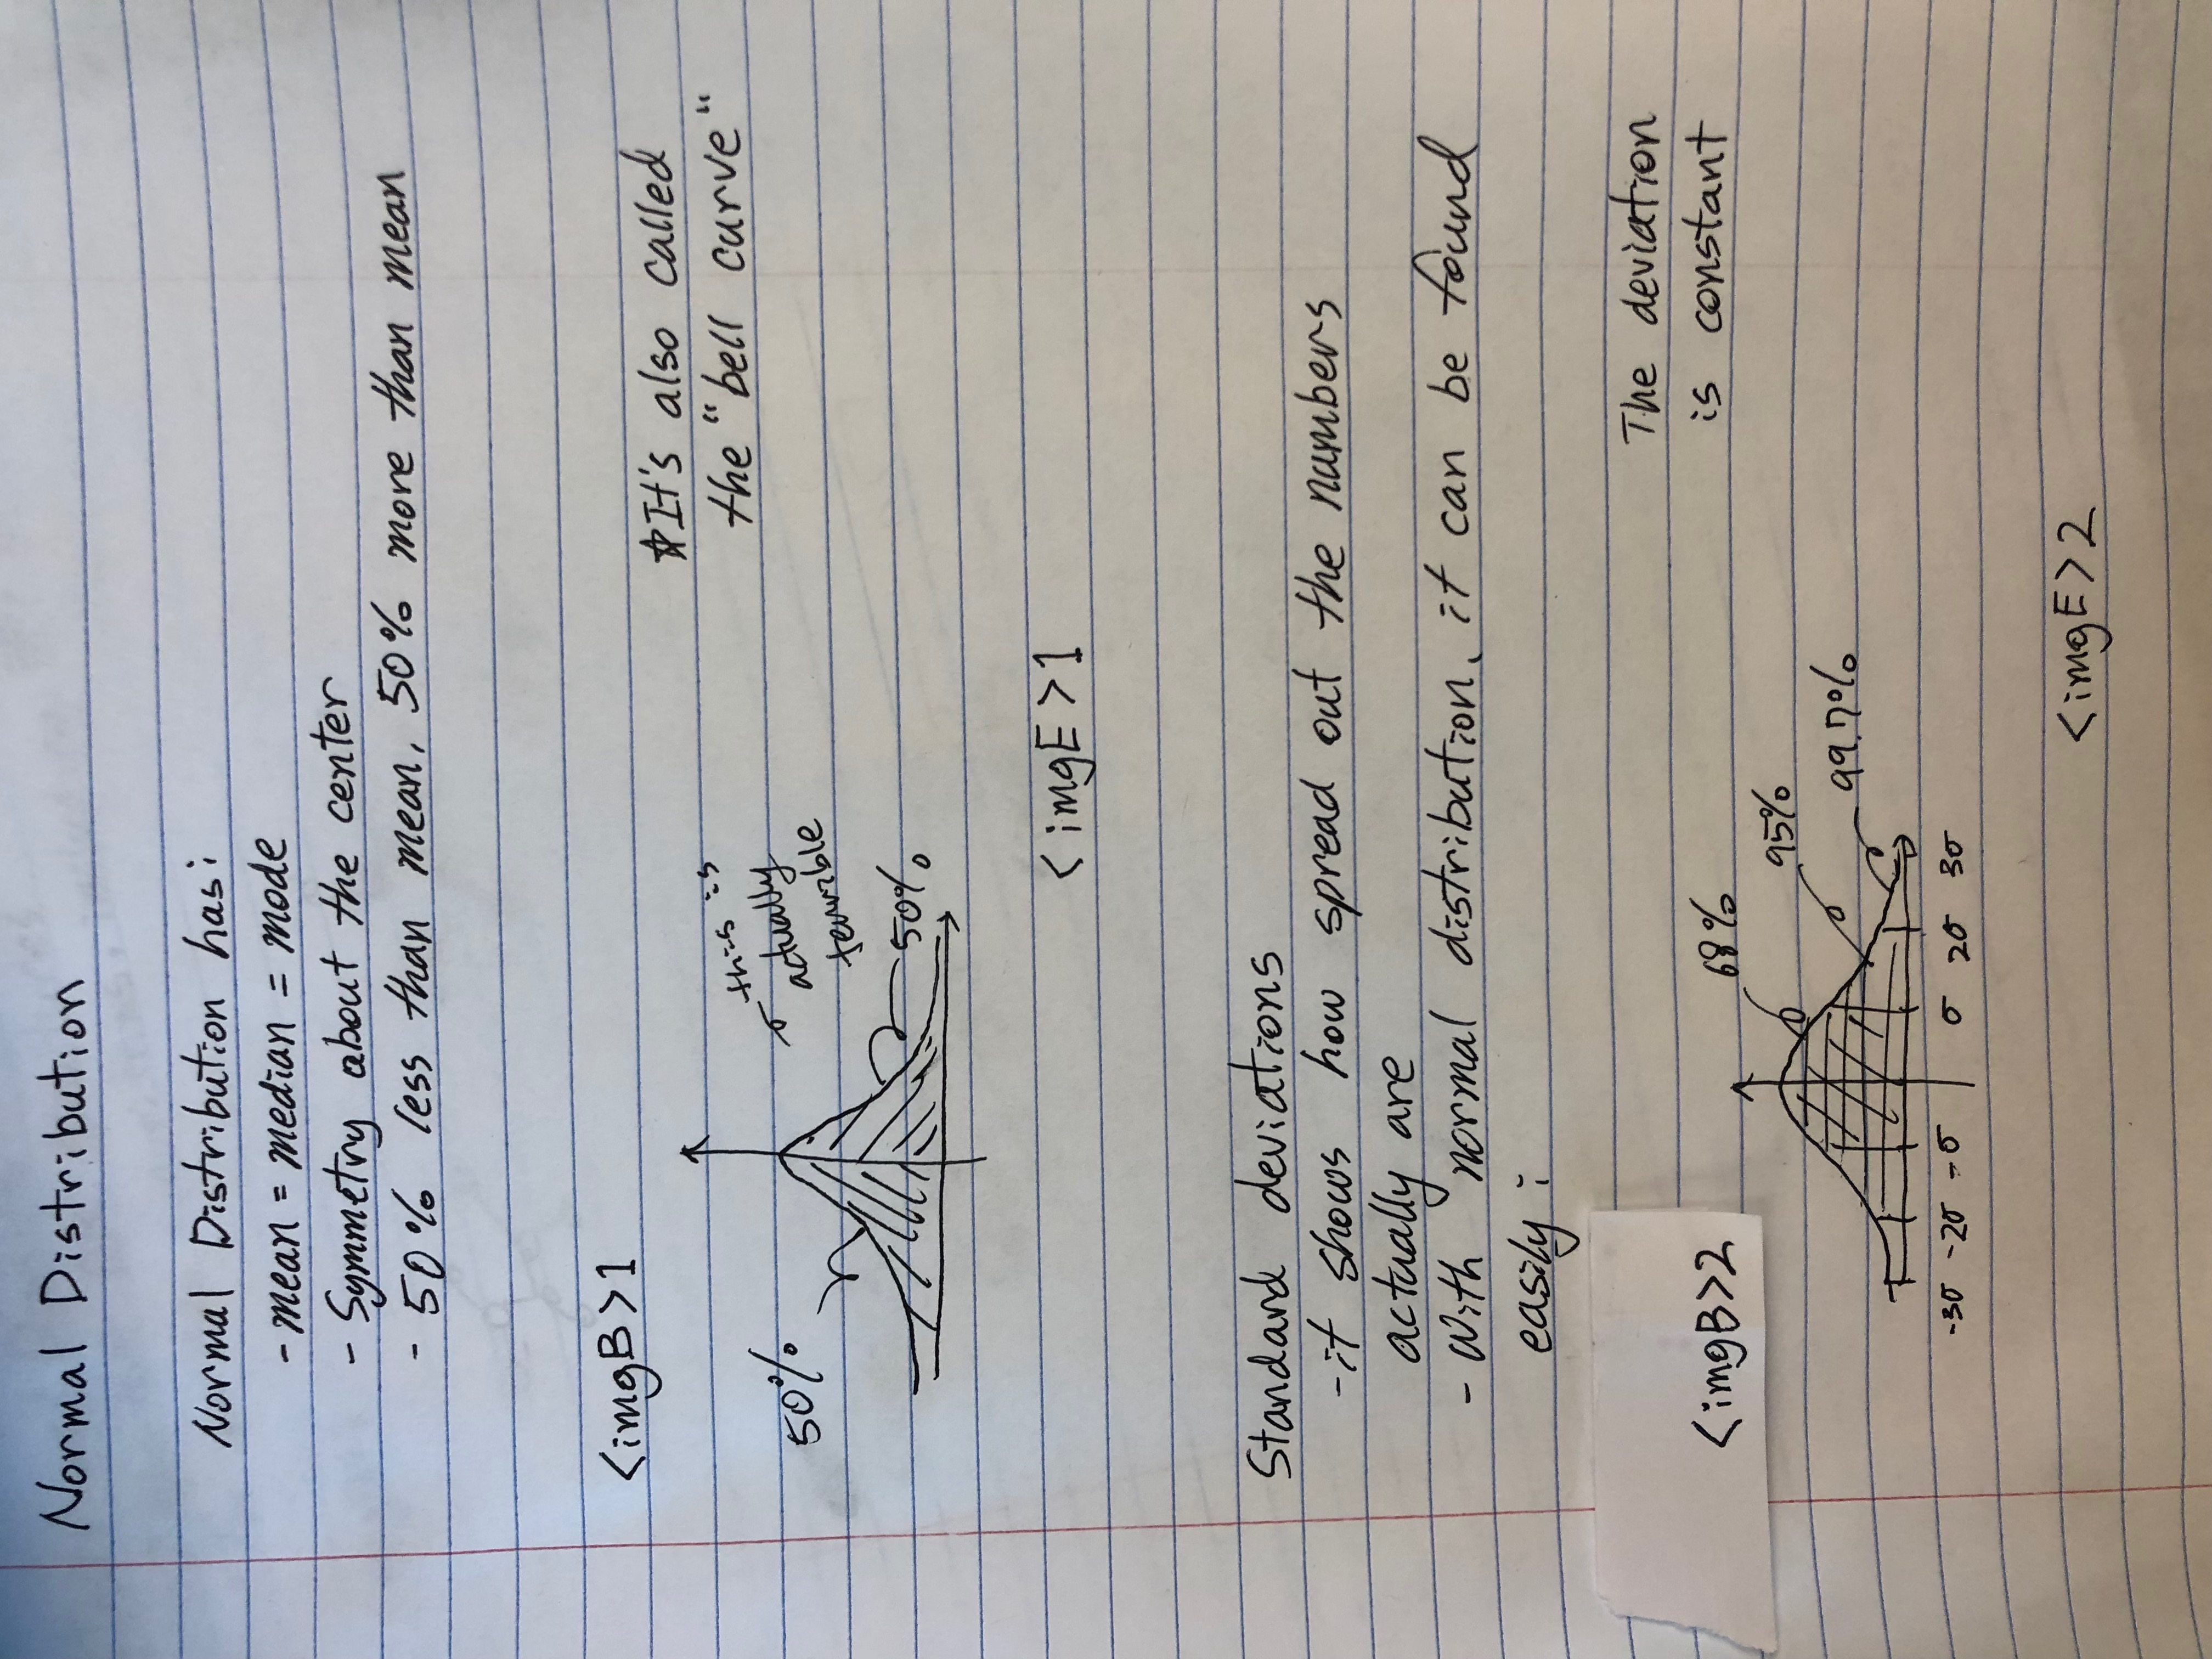 Normal Distribution
Normal Distribution has:
- mean = median = mode
- Symmetry about the center
- 50% less than mean, 50% more than mean
<imgB>1
☆It's also called
the "bell curve"
this is
actually
terrible
50%
50%
<imgE>1
Standard deviations
- it shows how spread out the numbers
actually are
- With normal distribution, it can be found
easily:
<imgB>2
The deviation
is constant
68%
95%
99.7%
-3σ -2σ -σ σ 2σ 3σ
<imgE>2